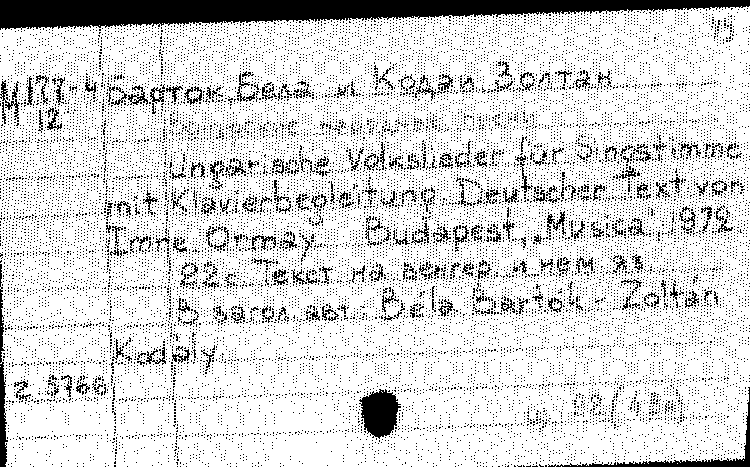 М 177-4 Барток, Бела и Кодаи Золтан
12
Ungarische Volkslieder für Singstimme
mit Klavierbegleitung Deutscher Text von
Imne Ormay. Budapest, „Musica", 1972
22 с. Текст на венгер. и нем яз.
В загол. авт.: Béla Bartók - Zoltán
Kodály.
2 5766